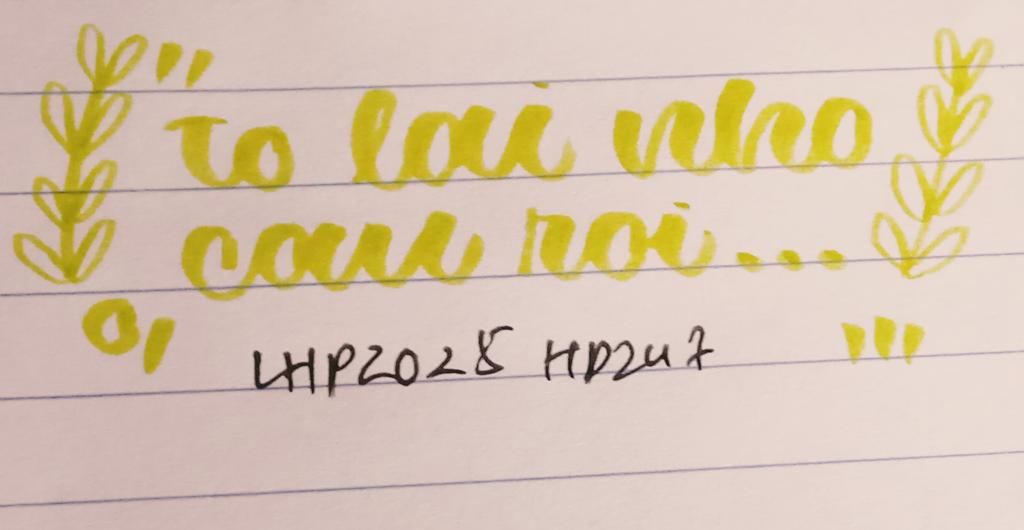 "to lai nho
cau roi...
LHP2025 HD247